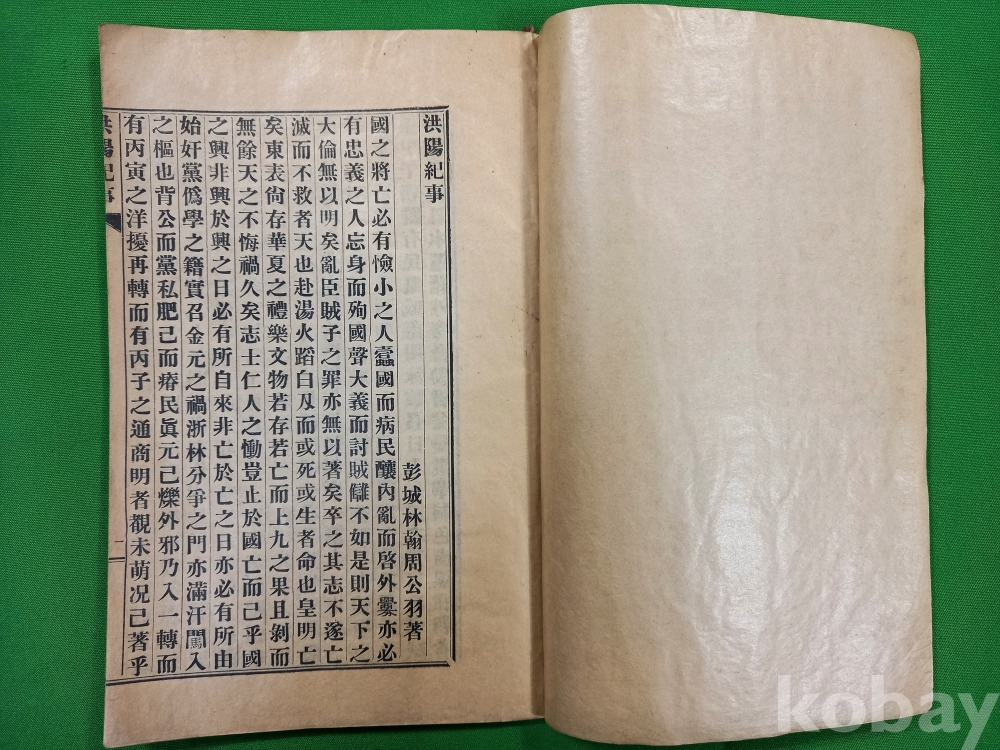 洪陽紀事
彭城林翰周公羽著
國之將亡必有憸小之人蠧國而病民釀內亂而啓外釁亦必
有忠義之人忘身而殉國聲大義而討賊讎不如是則天下之
大倫無以明矣亂臣賊子之罪亦無以著矣卒之其志不遂亡
滅而不救者天也赴湯火蹈白刄而或死或生者命也皇明亡
矣東表尙存華夏之禮樂文物若存若亡而上九之果且剝而
無餘天之不悔禍久矣志士仁人之慟豈止於國亡而已乎國
之興非興於興之日必有所自來非亡於亡之日亦必有所由
始奸黨僞學之籍實召金元之禍浙林分爭之門亦滿汗闖入
之樞也背公而黨私肥己而瘠民眞元已爍外邪乃入一轉而
有丙寅之洋擾再轉而有丙子之通商明者覩未萌况已著乎
洪陽紀事
一
kobay